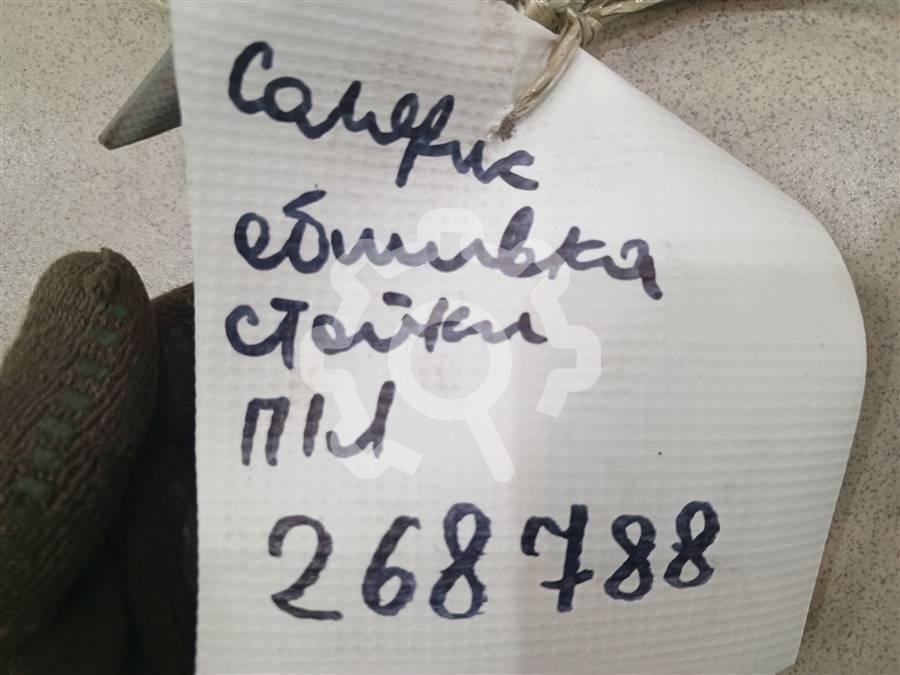 Солярис
обшивка
стойки
П\Л
268788